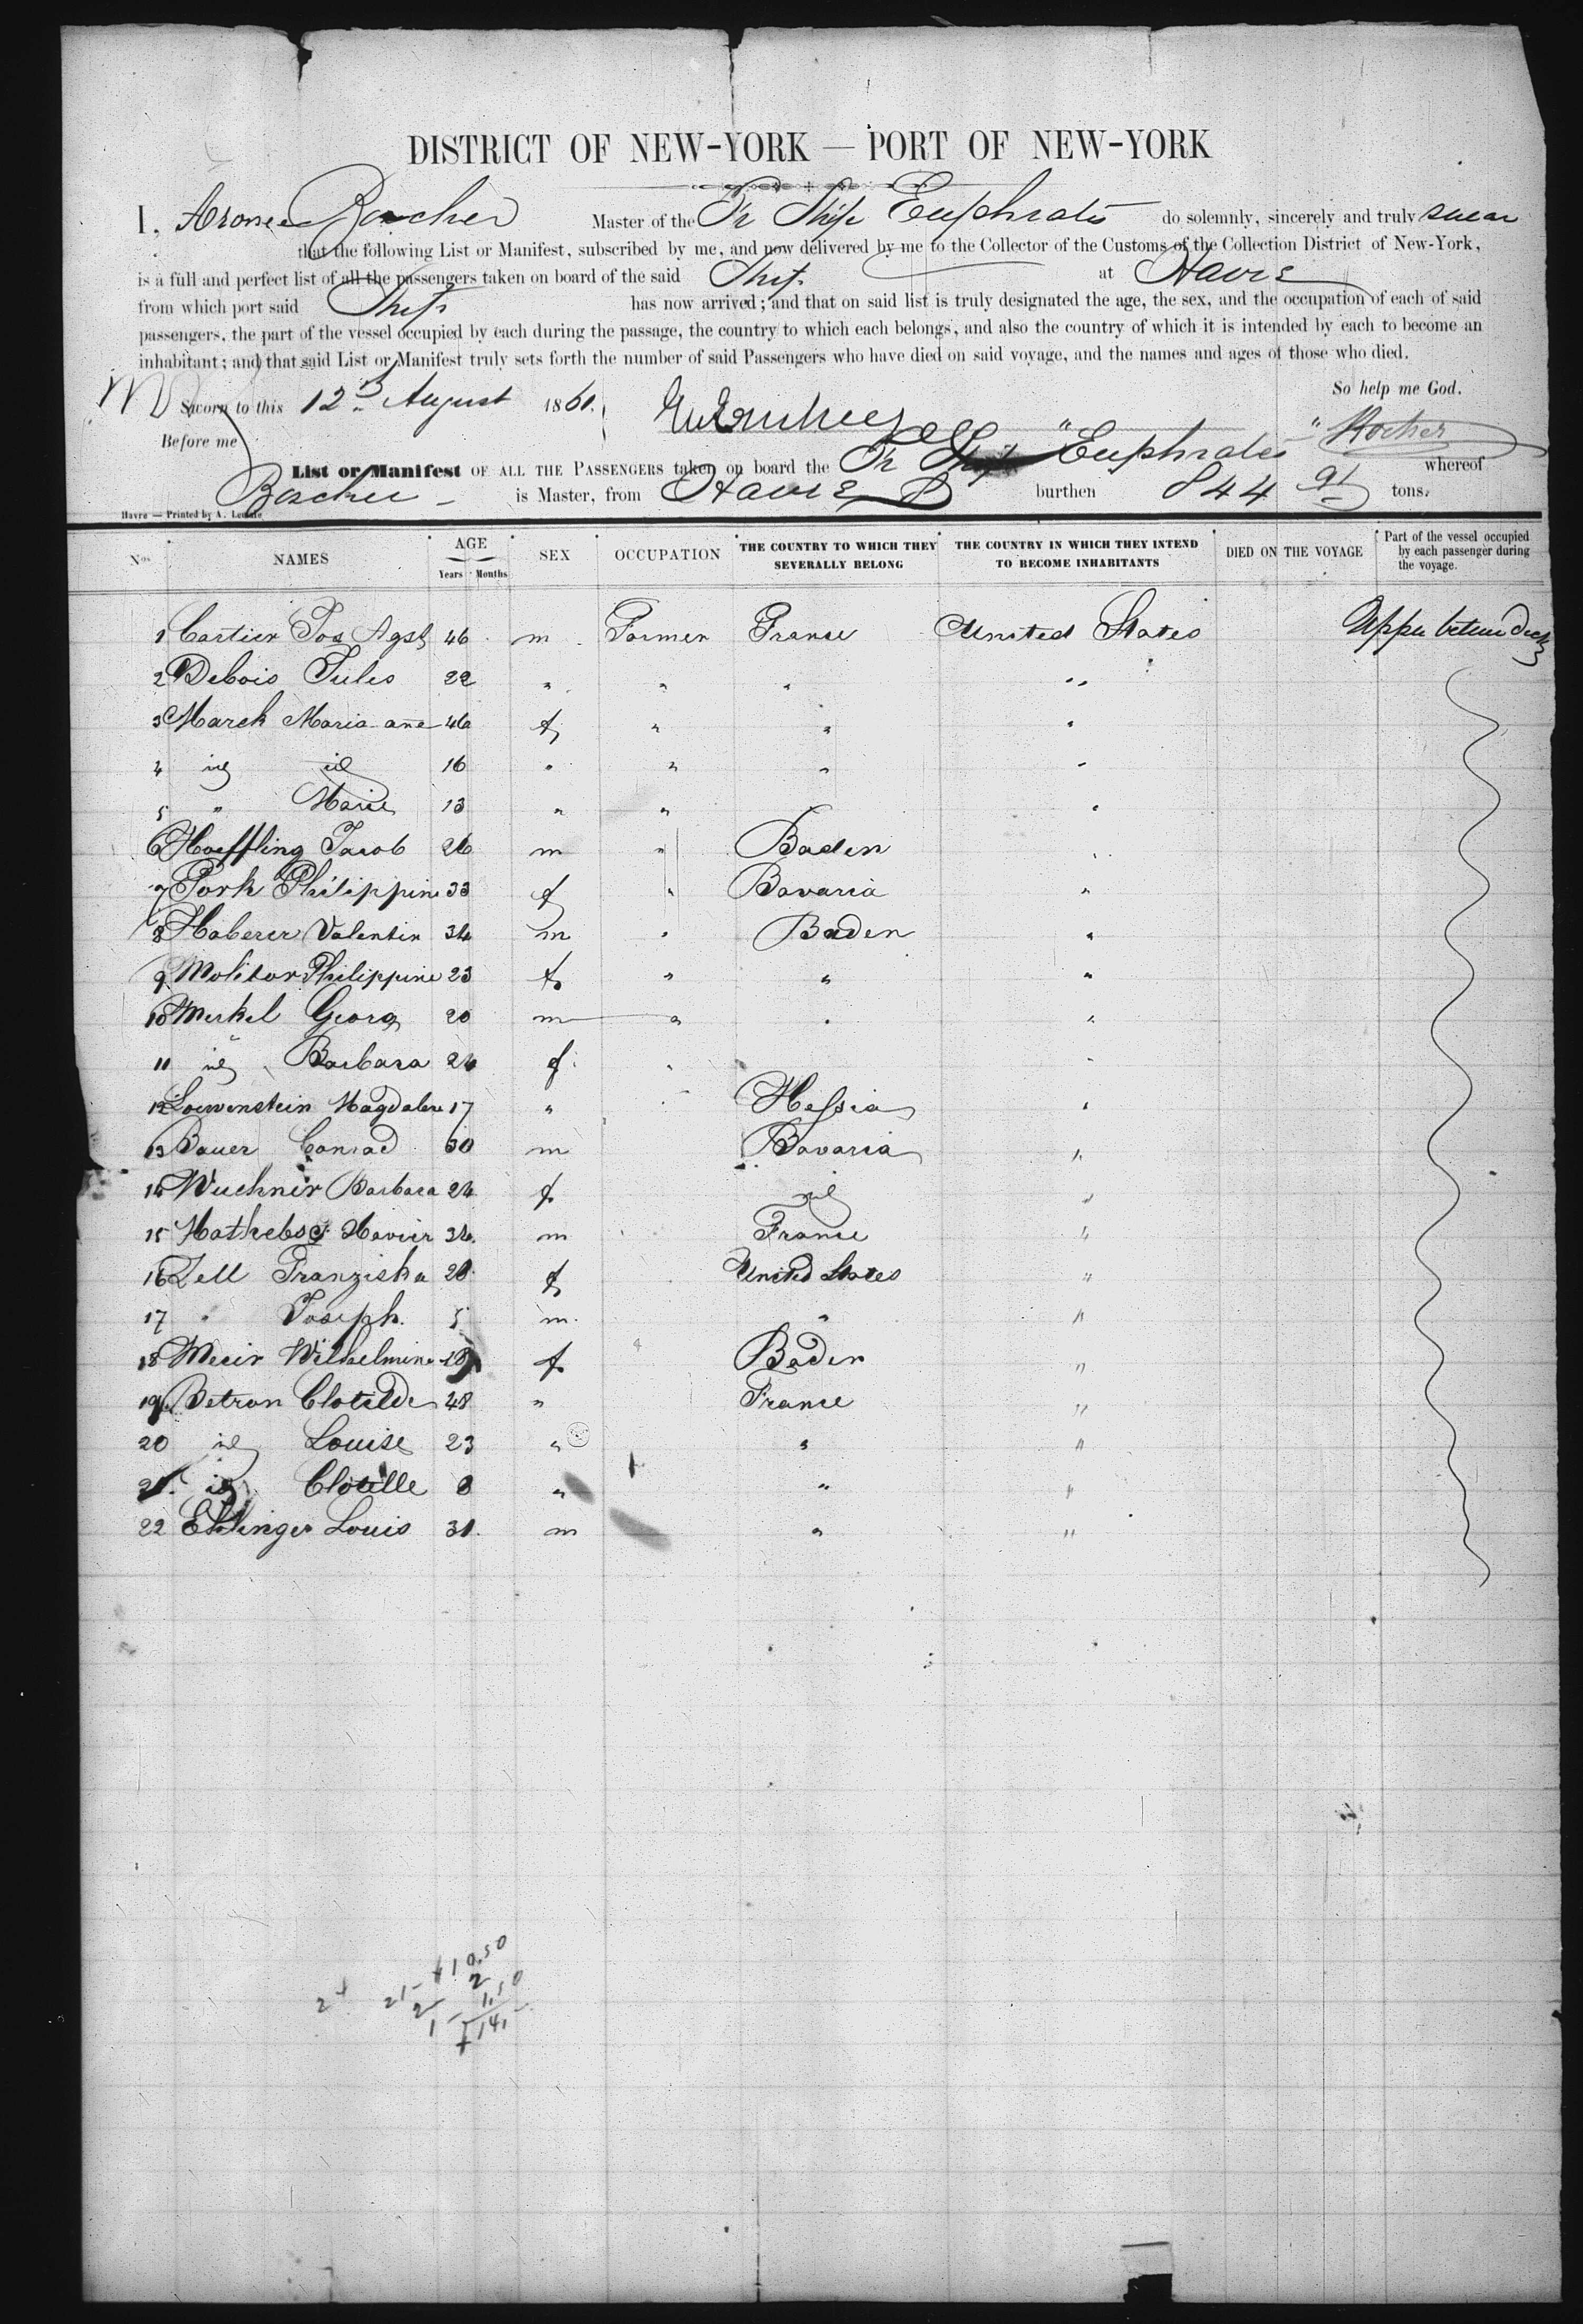 DISTRICT OF NEW-YORK — PORT OF NEW-YORK
I, Bocher Master of the Fr Ship Euphrates do solemnly, sincerely and truly swear
that the following List or Manifest, subscribed by me, and now delivered by me to the Collector of the Customs of the Collection District of New-York,
is a full and perfect list of all the passengers taken on board of the said Ship at Havre
from which port said Ship has now arrived; and that on said list is truly designated the age, the sex, and the occupation of each of said
passengers, the part of the vessel occupied by each during the passage, the country to which each belongs, and also the country of which it is intended by each to become an
inhabitant; and that said List or Manifest truly sets forth the number of said Passengers who have died on said voyage, and the names and ages of those who died.
So help me God.
Sworn to this 12 August 1861.
Before me
List or Manifest OF ALL THE PASSENGERS taken on board the Fr Ship "Euphrates" whereof
Bocher is Master, from Havre burthen 844 91 tons.
Havre — Printed by A.
Nos NAMES AGE Years Months SEX OCCUPATION THE COUNTRY TO WHICH THEY SEVERALLY BELONG THE COUNTRY IN WHICH THEY INTEND TO BECOME INHABITANTS DIED ON THE VOYAGE Part of the vessel occupied by each passenger during the voyage.
1 Cartier Jos Agst 46 m Farmer France United States Upper between Deck
2 Debois Jules 22 " " " "
3 March Maria ane 46 f " " "
4 id id 16 " " " "
5 " Marie 13 " " "
6 Hoeffling Jacob 26 m " Baden "
7 Pork Philippine 33 f " Bavaria "
8 Haberer Valentin 34 m " Baden "
9 Molitor Philippine 23 f " " "
10 Merkel Georg 20 m " " "
11 id Barbara 24 f " "
12 Loewenstein Magdalene 17 " Hessia "
13 Bauer Conrad 30 m Bavaria "
14 Wuchner Barbara 24 f id "
15 Xavier 34 m France "
16 Zell Franziska 28 f United States "
17 " Joseph. 5 m. " "
18 Meier Wilhelmine 18 f Baden "
19 Betron Clotilde 48 " France "
20 id Louise 23 " " "
21. id Clotille 8 " " "
22 Louis 31. m " "
2 21- 10.50
2 2
1- 1.50
14,-